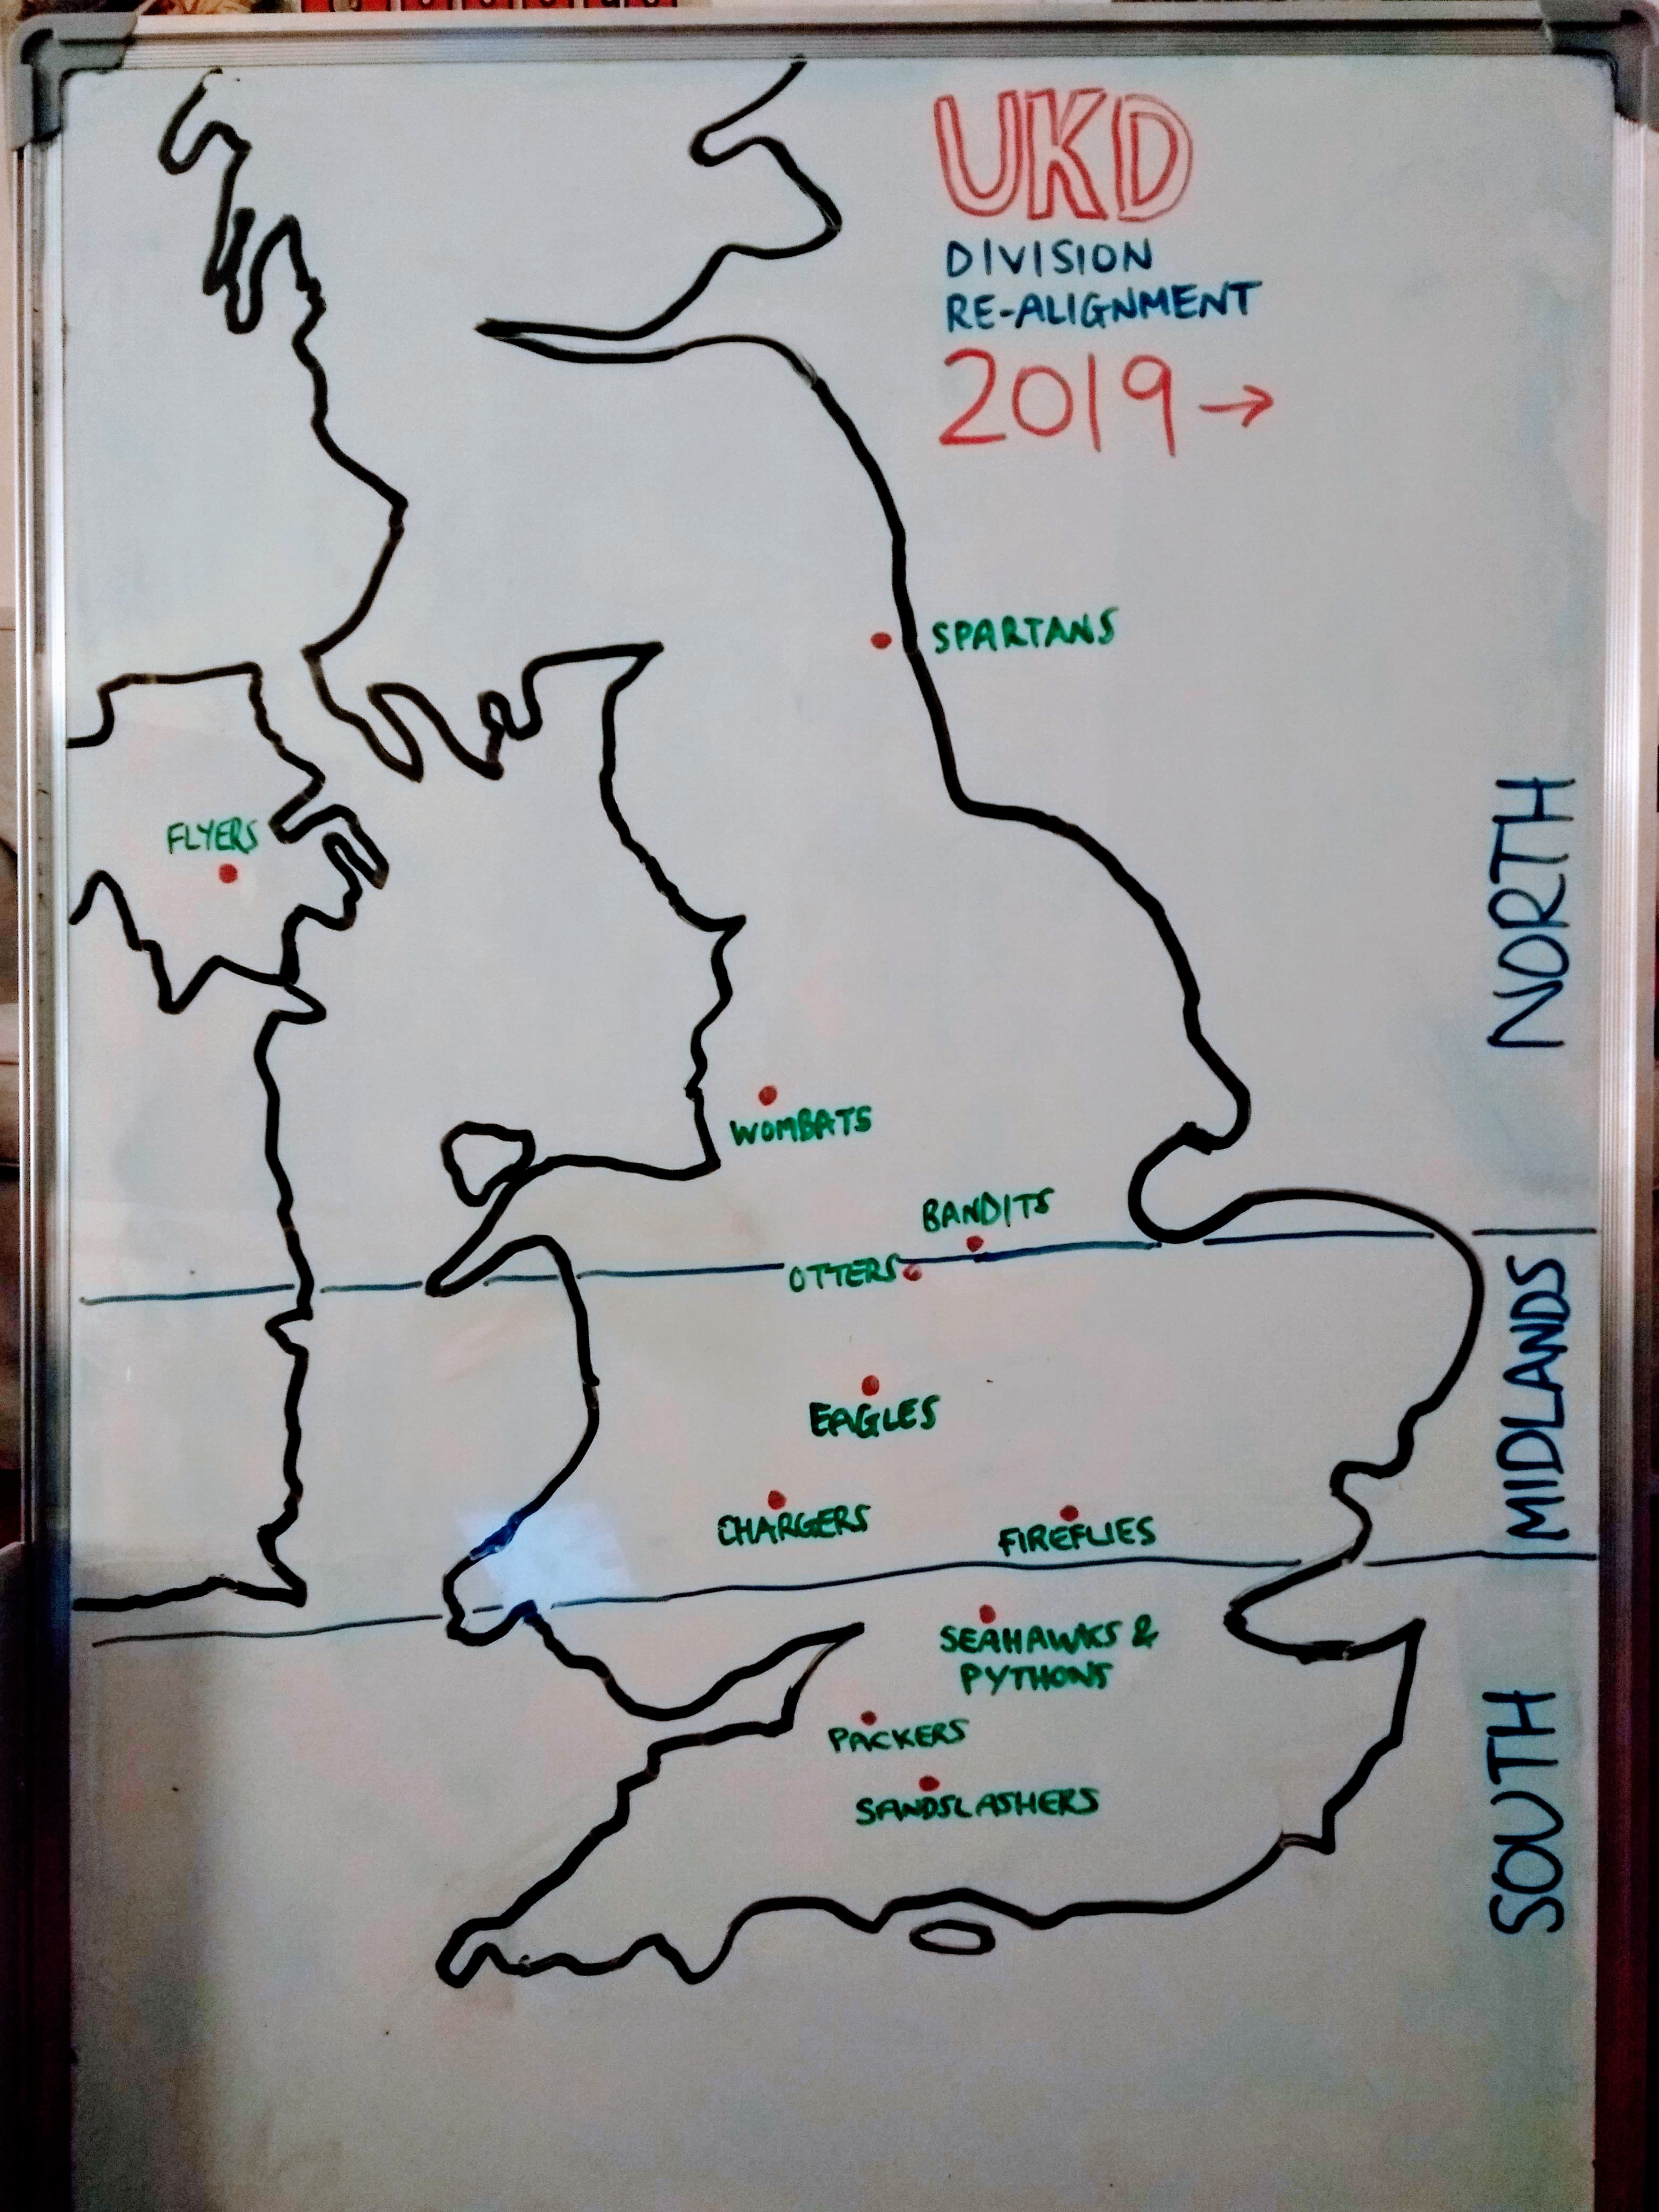 UKD
DIVISION
RE-ALIGNMENT
2019→
SPARTANS
FLYERS
NORTH
WOMBATS
BANDITS
OTTERS
MIDLANDS
EAGLES
CHARGERS
FIREFLIES
SEAHAWKS &
PYTHONS
PACKERS
SANDSLASHERS
SOUTH